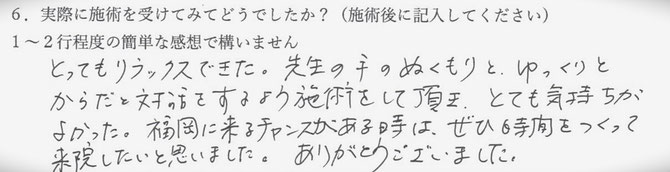 6．実際に施術を受けてみてどうでしたか？（施術後に記入してください）
1～2行程度の簡単な感想で構いません
とってもリラックスできた。先生の手のぬくもりと、ゆっくりと
からだと対話をするよう施術をして頂き、とても気持ちが
よかった。福岡に来るチャンスがある時は、ぜひ時間をつくって
来院したいと思いました。ありがとうございました。